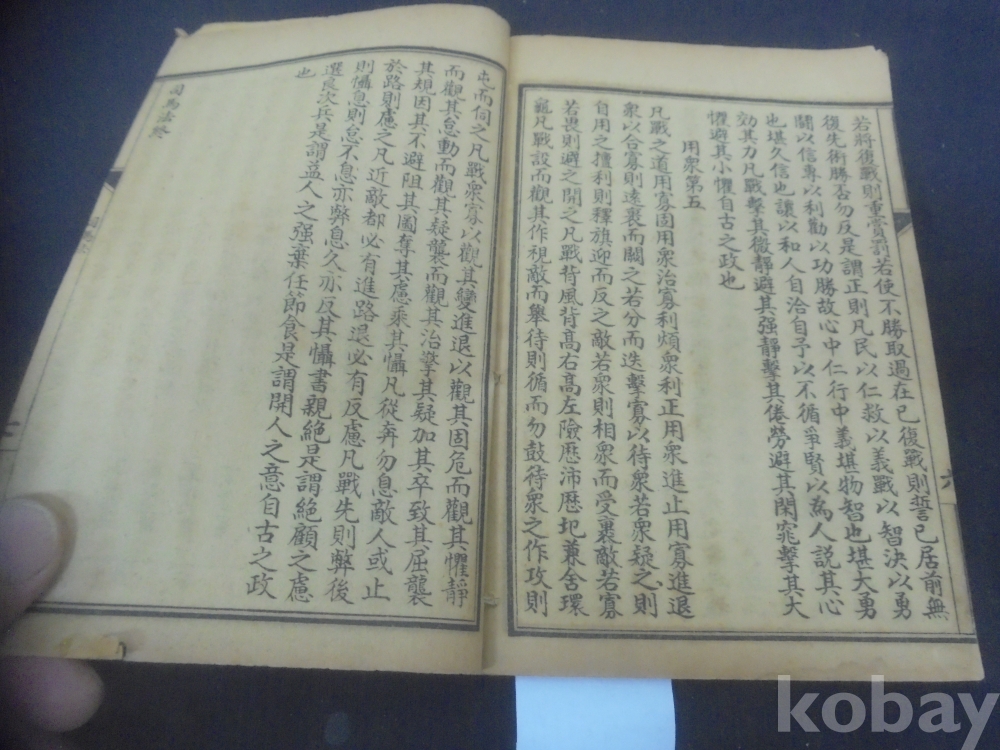 若將復戰則重賞罰若使不勝取過在己復戰則誓己居前無
復先術勝否勿反是謂正則凡民以仁救以義戰以智決以勇
鬪以信專以利勸以功勝故心中仁行中義堪物智也堪大勇
也堪久信也讓以和人自洽自予以不循爭賢以爲人說其心
効其力凡戰擊其微靜避其强靜擊其倦勞避其閑窕擊其大
懼避其小懼自古之政也
用衆第五
凡戰之道用寡固用衆治寡利煩衆利正用衆進止用寡進退
衆以合寡則遠裹而闕之若分而迭擊寡以待衆若衆疑之則
自用之擅利則釋旗迎而反之敵若衆則相衆而受裹敵若寡
若畏則避之開之凡戰背風背高右高左險歷沛歷圯兼舍環
龜凡戰設而觀其作視敵而舉待則循而勿鼓待衆之作攻則
屯而伺之凡戰衆寡以觀其變進退以觀其固危而觀其懼靜
而觀其怠動而觀其疑襲而觀其治擊其疑加其卒致其屈襲
其規因其不避阻其圖奪其慮乘其懾凡從奔勿息敵人或止
於路則慮之凡近敵都必有進路退必有反慮凡戰先則弊後
則懾息則怠不息亦弊息久亦反其懾書親絶是謂絶顧之慮
選良次兵是謂益人之强棄任節食是謂開人之意自古之政
也
司馬法終
六
kobay